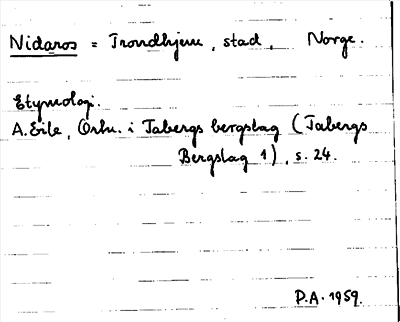 Nidaros = Trondhjem, stad, Norge.
Etymologi.
A. Eile, Ortn. i Tabergs bergslag (Tabergs
Bergslag 1), s. 24.
P.A. 1959.